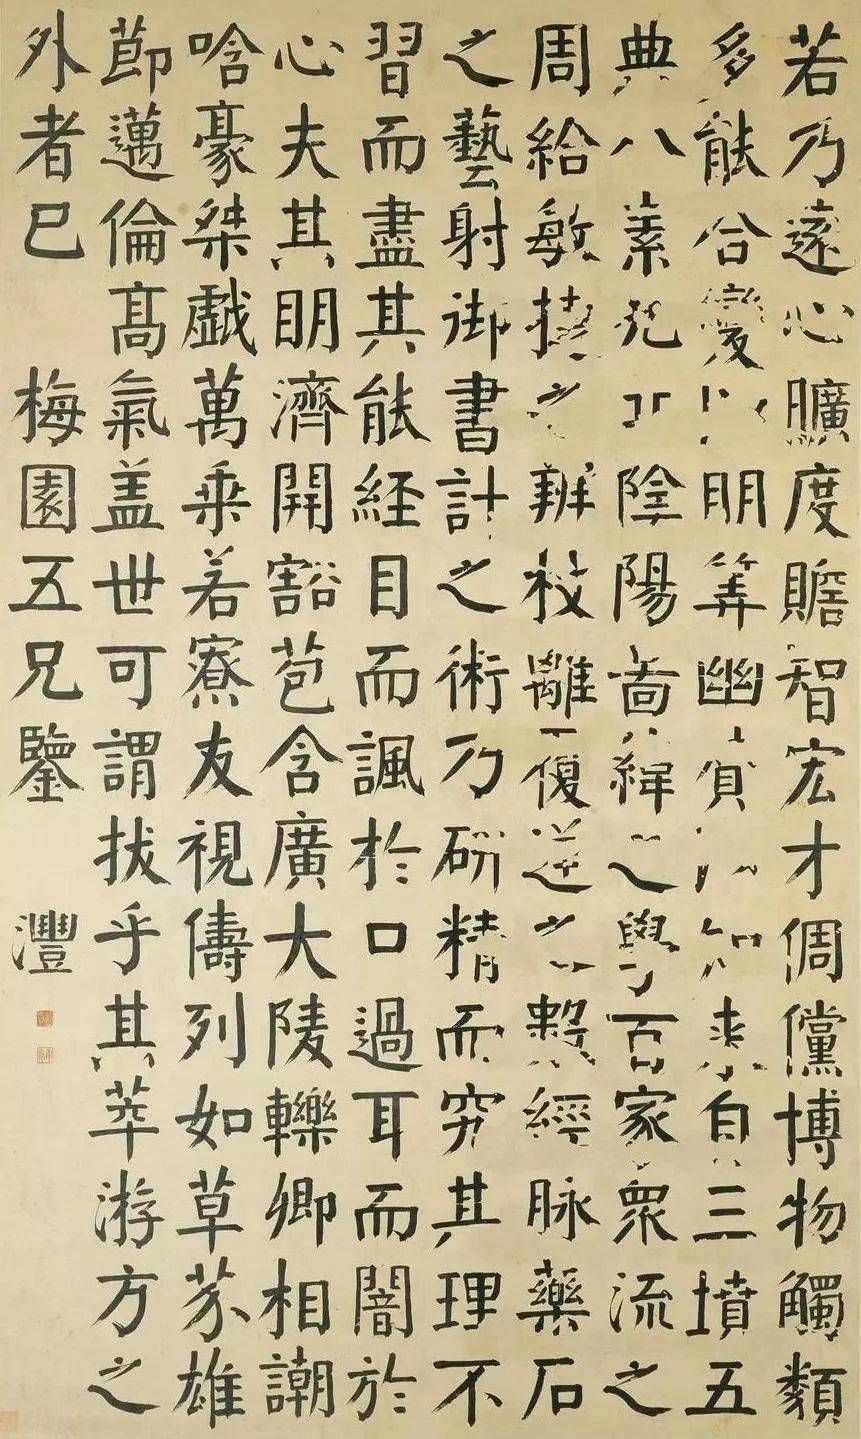 若乃遠心曠度贍智宏才倜儻博物觸類
多能合變以明筭幽賛以知来自三墳五
典八素九丘陰陽啚緯之學百家衆流之
周給敏捷之辨枝離覆逆之數經脉藥石
之藝射御書計之術乃研精而究其理不
習而盡其能経目而諷於口過耳而闇於
心夫其明濟開豁苞含廣大陵轢卿相謿
唅豪桀戯萬乘若寮友視儔列如草芥雄
節邁倫髙氣盖世可謂拔乎其萃游方之
外者已 梅園五兄鑒 灃